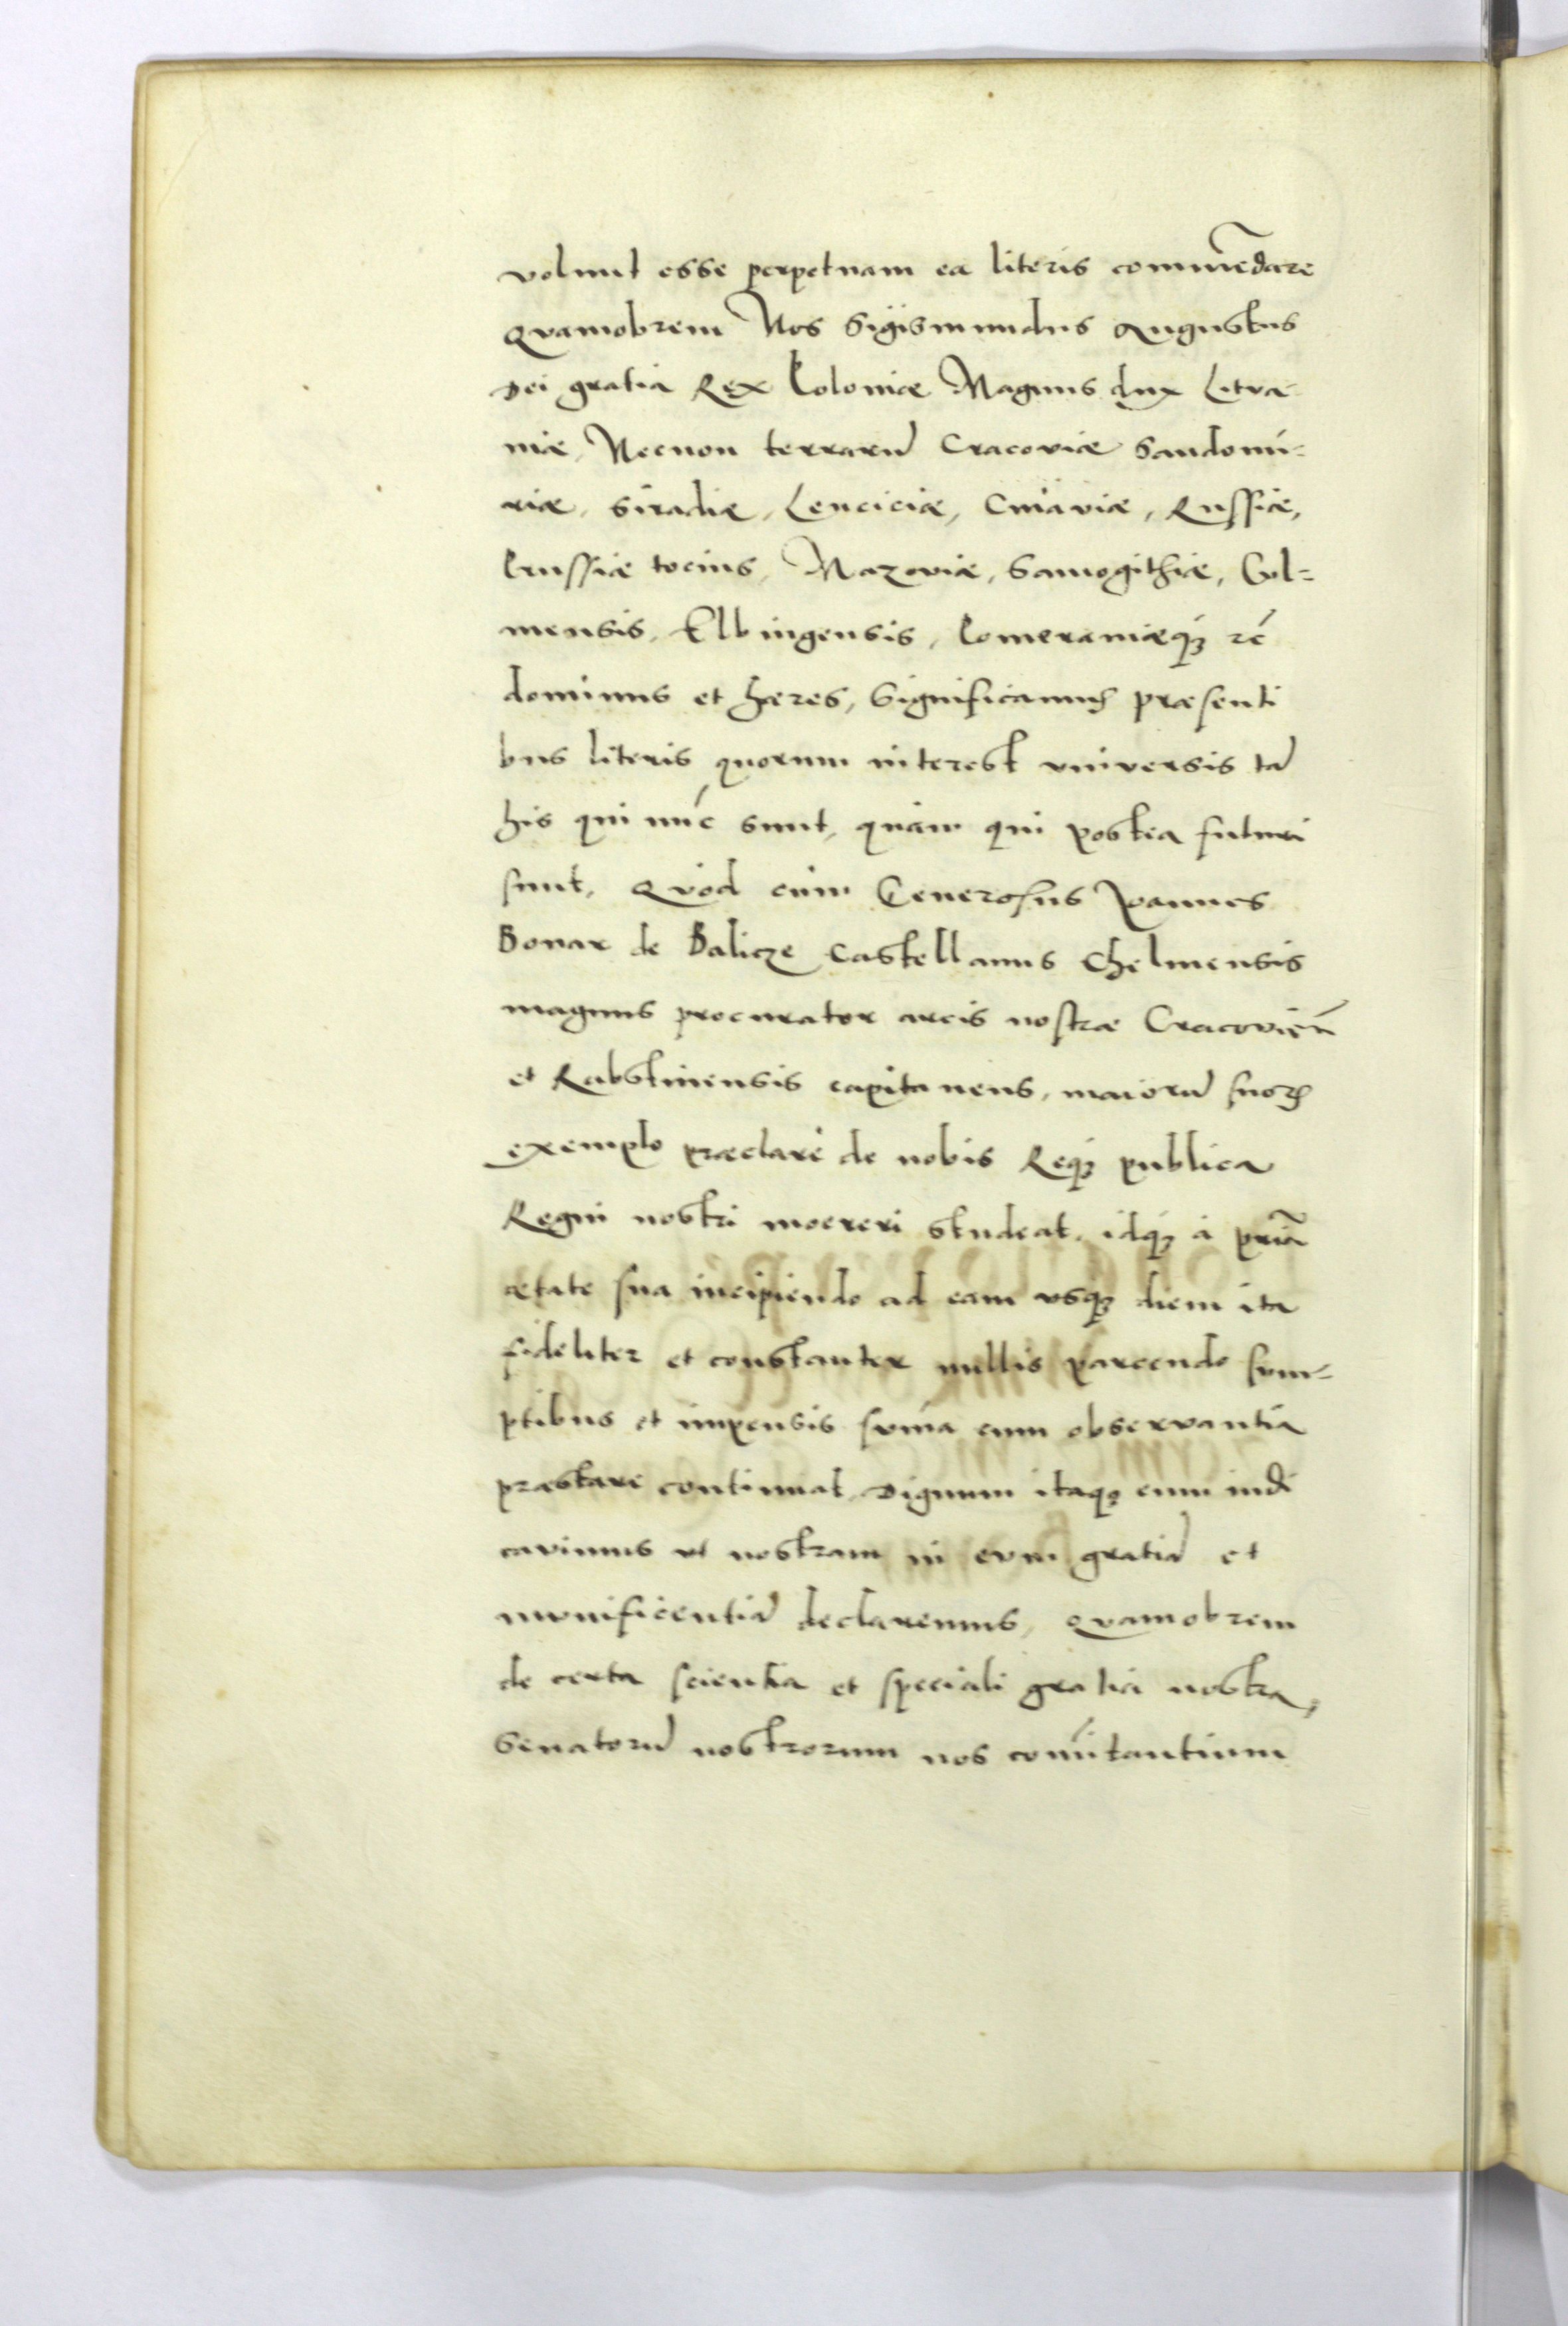 volunt esse perpetuam ea literis comm̃edare
Qvamobrem Nos Sigismundus Augustus
Dei gratia Rex Poloniæ Magnus dux Litva
niæ, Necnon terrarũ Cracoviæ Sandomi-
riæ, Siradiæ, Lenciciæ, Cuiaviæ, Russiæ,
Prussiæ tocius, Mazoviæ, Samogithiæ, Cul-
mensis, Elbingensis, Pomeraniæq; zc̃
dominus et hæres, Significamus præsenti
bus literis quorum interest vniversis tã
his qui nũc sunt, quàm qui postea futuri
sunt, Quòd cùm Generosus Joannes
Bonar de Balicze Castellanus Chelmensis
magnus procurator arcis nostræ Cracovieñ
et Rabstinensis capitaneus, maiorũ suoꝝ
exemplo præclarè de nobis Req; publica
Regni nostri moereri studeat, idq; à prĩa
ætate sua incipiendo ad eam vsq; diem ita
fideliter et constanter nullis parcendo sum-
ptibus et impensis sum̃a cum observantia
præstare continuat, Dignum itaq; eum iudi
cavimus vt nostram in evm gratiã et
mvnificentiã declaremus, Qvamobrem
de certa scientia et speciali gratia nostra,
Senatorũ nostrorum nos comitantium